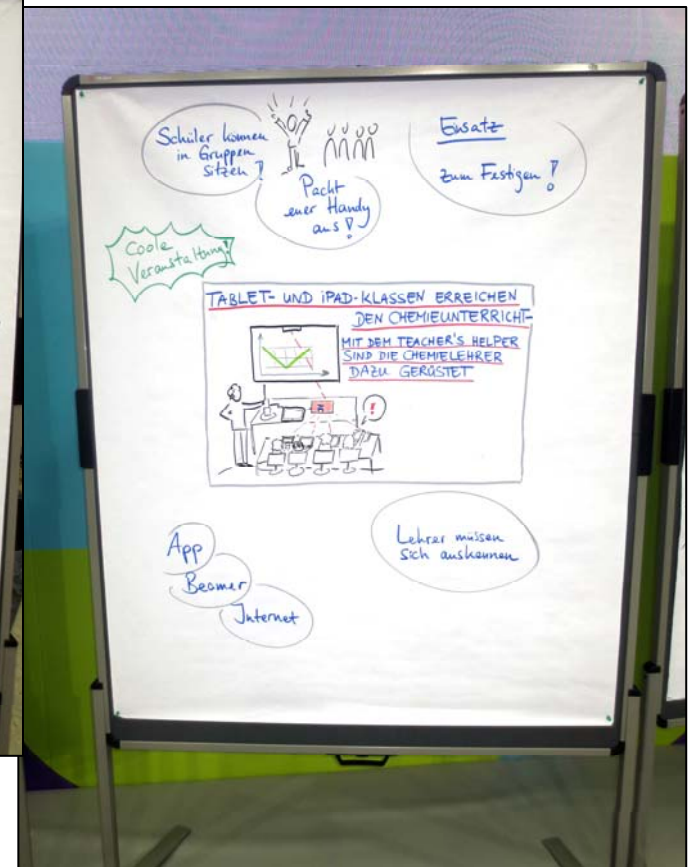 Schüler können
in Gruppen
sitzen!
Packt
euer Handy
aus!
Einsatz
zum Festigen!
Coole
Veranstaltung!
TABLET- UND iPAD-KLASSEN ERREICHEN
DEN CHEMIEUNTERRICHT-
MIT DEM TEACHER'S HELPER
SIND DIE CHEMIELEHRER
DAZU GERÜSTET
!
App
Beamer
Internet
Lehrer müssen
sich auskennen